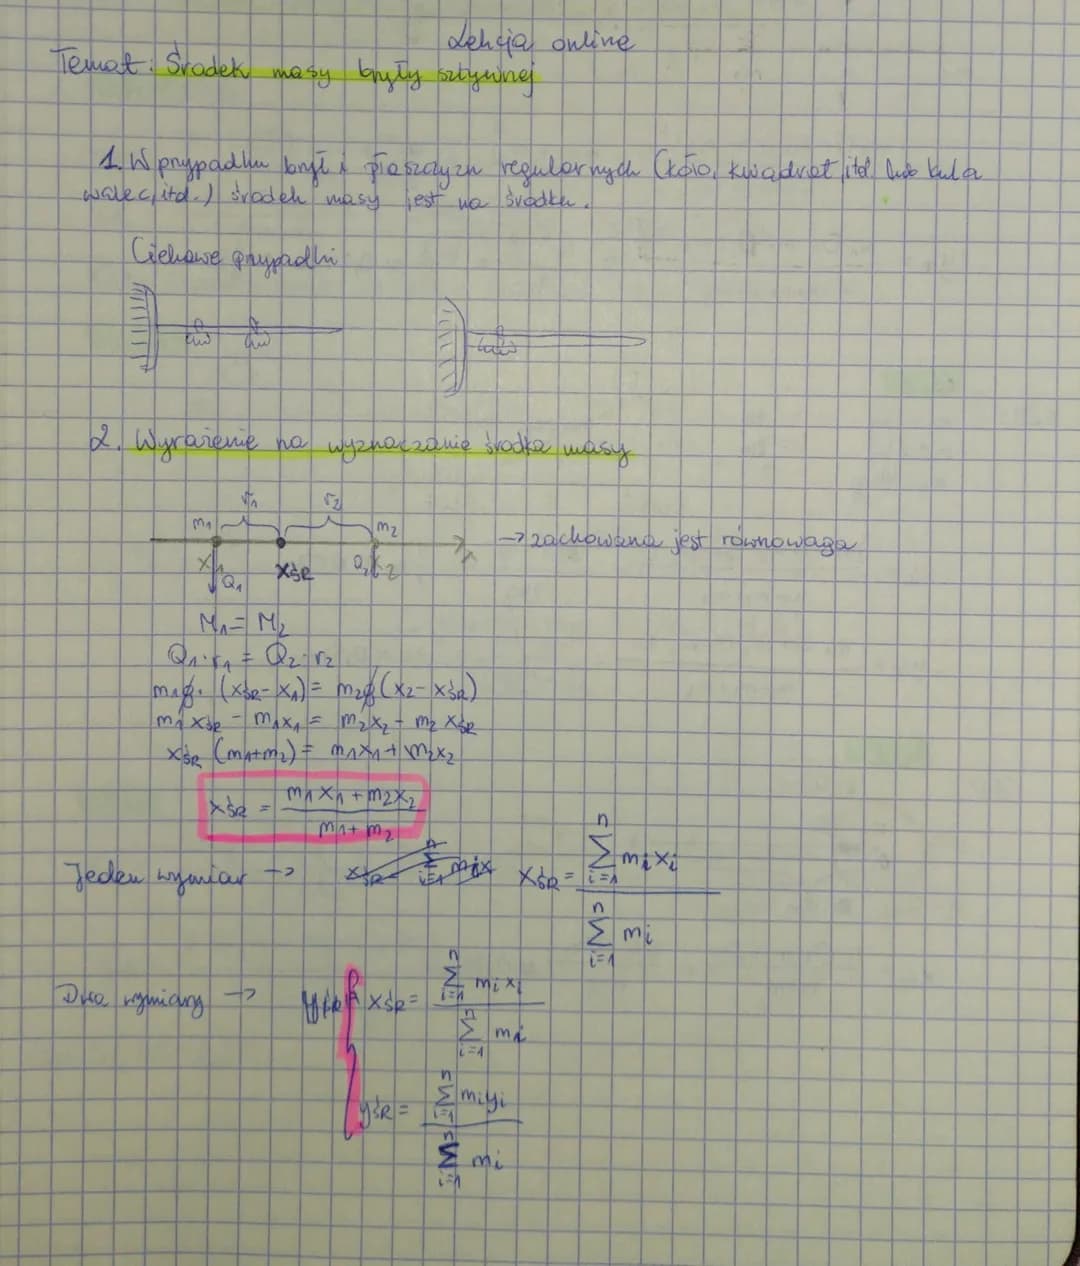 Lekcja online
Temat: Środek masy bryły sztywnej
1. W przypadku brył i płaszczyzn regularnych (koło, kwadrat, itd. lub kula
walec, itd.) środek masy jest na środku.
Ciekawe przypadki
2. Wyrażenie na wyznaczanie środka masy
r₁ r₂
m₁ m₂ → zachowana jest równowaga
x₁ Q₁ xŚR Q₂ x₂ x
M₁ = M₂
Q₁·r₁ = Q₂·r₂
m₁g·(xŚR - x₁) = m₂g(x₂ - xŚR)
m₁xŚR - m₁x₁ = m₂x₂ - m₂xŚR
xŚR (m₁+m₂) = m₁x₁ + m₂x₂
xŚR = (m₁x₁ + m₂x₂) / (m₁ + m₂)
Jeden wymiar → xŚR = ∑ i=1 n mᵢxᵢ / ∑ i=1 n mᵢ
Dwa wymiary → xŚR = ∑ i=1 n mᵢxᵢ / ∑ i=1 n mᵢ
yŚR = ∑ i=1 n mᵢyᵢ / ∑ i=1 n mᵢ